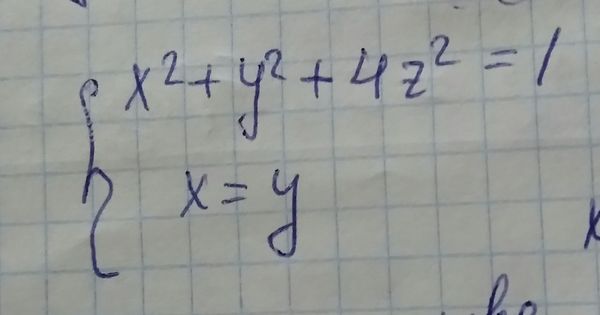 x² + y² + 4z² = 1
x = y